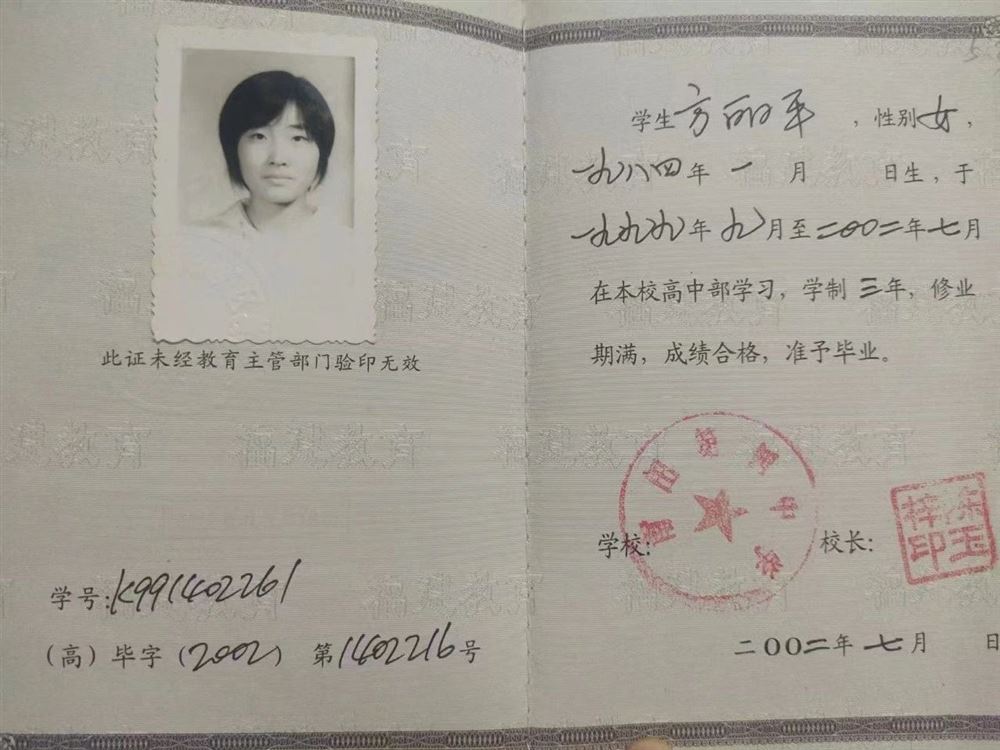 此证未经教育主管部门验印无效
学号:K991402261
(高)毕字(2002)第1402216号
学生方丽平,性别女,
一九八四年一月 日生,于
一九九九年九月至二00二年七月
在本校高中部学习,学制三年,修业
期满,成绩合格,准予毕业。
学校:
莆田第中学
校长:
玉梓印
二00二年七月 日